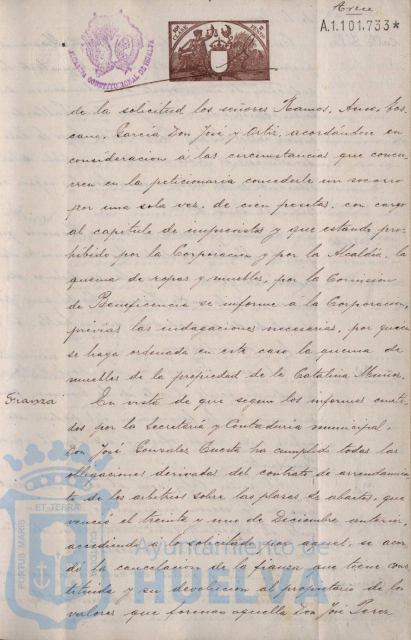 Trece
A.1.101.733*
de la solicitud los señores Ramos, Amo, Las
cano, Garcia Don José y Ortiz, acordandose en
consideracion á las circunstancias que concu
rren en la peticionaria concederle un socorro
por una sola vez, de cien pesetas, con cargo
al capitulo de imprevistos y que estando pro
hibido por la Corporacion y por la Alcaldia, la
quema de ropas y muebles, por la Comision
de Beneficencia se informe á la Corporacion,
previas las indagaciones necesarias, por quien
se haya ordenado en este caso la quema de
muebles de la propiedad de la Catalina Muñoz.
Fianza
En vista de que segun los informes emiti
dos por la Secretaria y Contaduria municipal,
Don José Gonzalez Cuesta ha cumplido todas las
obligaciones derivadas del contrato de arrendamien
to de los arbitrios sobre las plazas de abastos, que
venció el treinta y uno de Diciembre anterior,
accediendo á lo solicitado por aquel, se acor
dó la cancelacion de la fianza que tiene cons
tituida y su devolucion al propietario de los
valores que forman aquella Don José Perez
PORTUS MARIS
ET TERRÆ
Ayuntamiento de
HUELVA